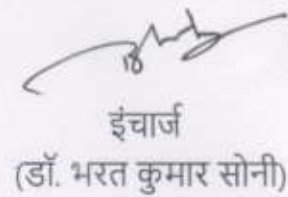 इंचार्ज
(डॉ. भरत कुमार सोनी)